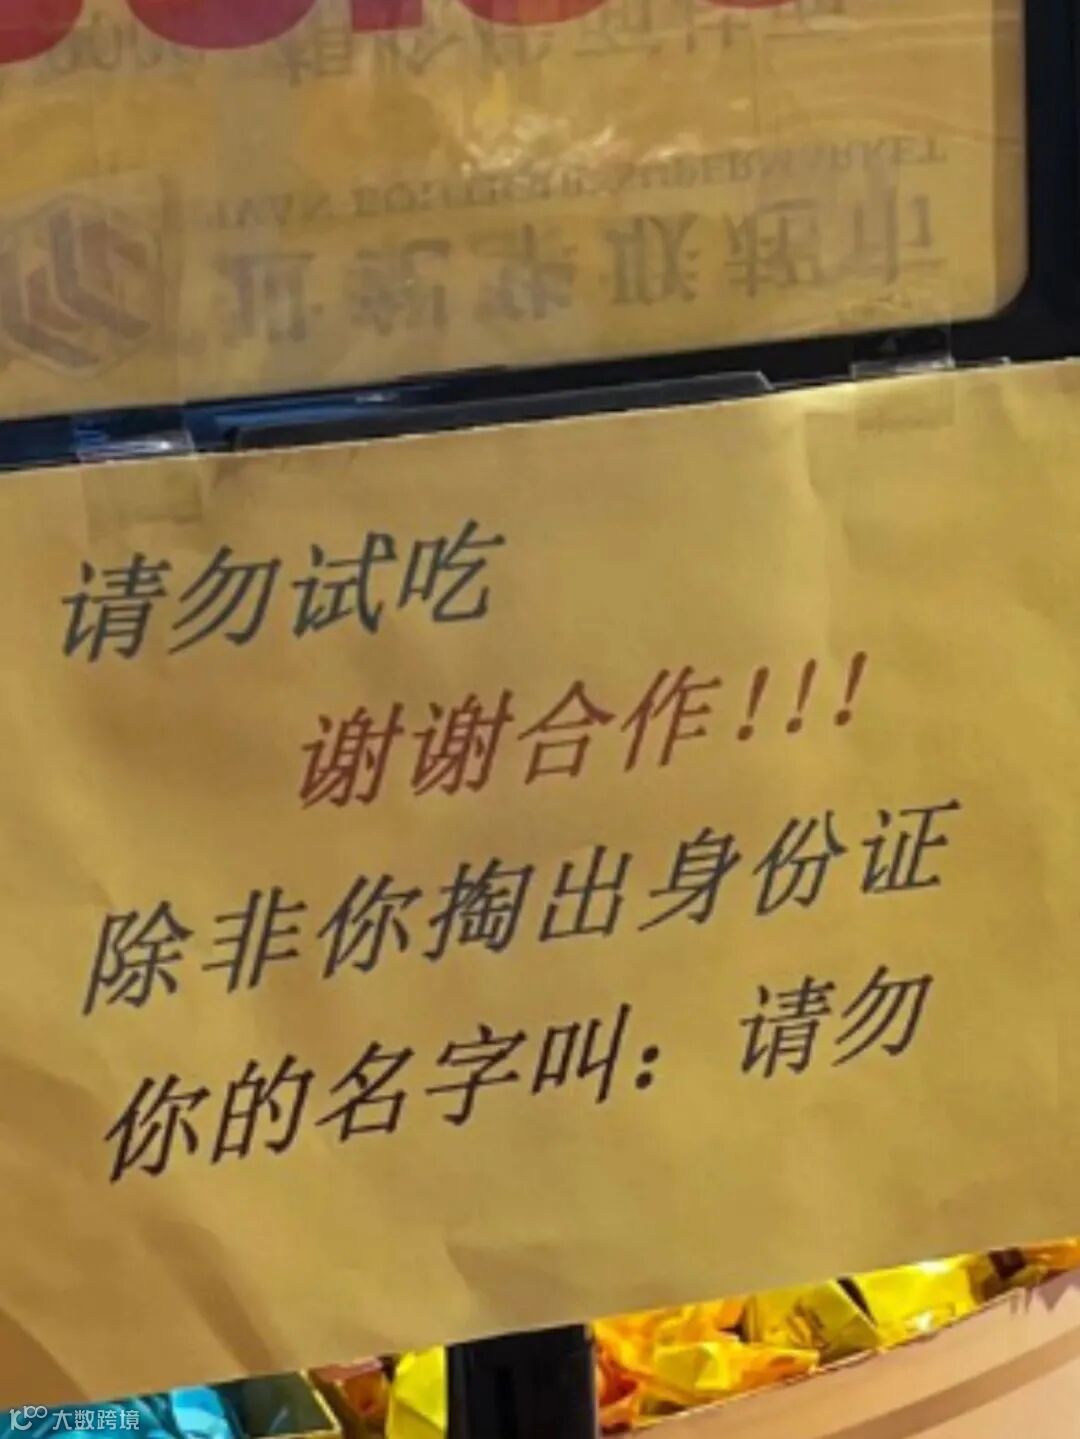 SUPERMARKET
请勿试吃
谢谢合作！！！
除非你掏出身份证
你的名字叫：请勿
大数跨境